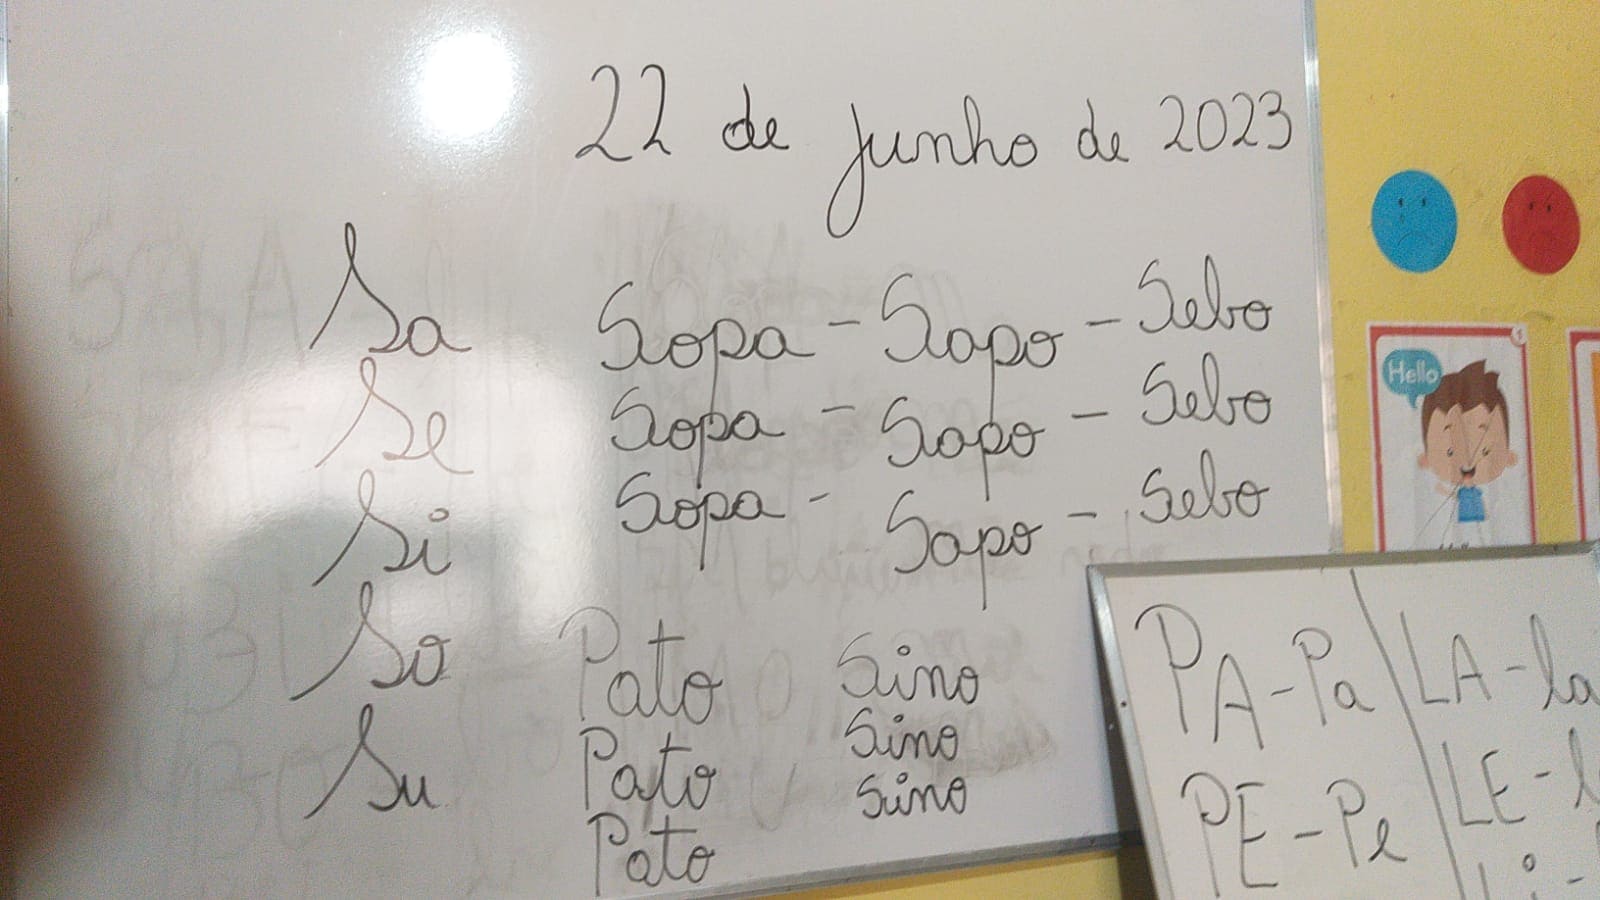 22 de junho de 2023
Sa
Sopa - Sapo - Sebo
Se
Sopa - Sapo - Sebo
Si
Sopa - Sapo - Sebo
So
Pato Sino
Su
Pato Sino
Pato Sino
Hello
PA - Pa LA - la
PE - Pe LE - l
Li -